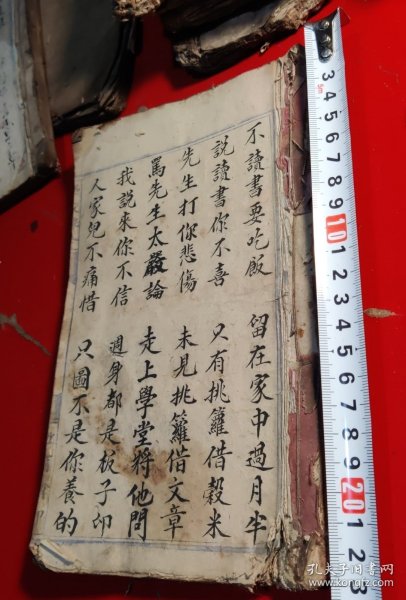 不讀書要吃飯 留在家中過月半
說讀書你不喜 只有挑籮借穀米
先生打你悲傷 未見挑籮借文章
罵先生太嚴論 走上學堂将他問
我說來你不信 週身都是板子印
人家兒不痛惜 只圖不是你養的
3 4 5m 6 7 8 9 10 1 2 3 4 5 6 7 8 9 20 1 2 3
孔夫子旧书网
www.kongfz.com